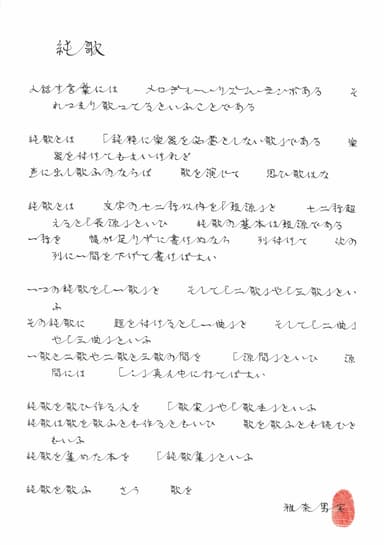 純歌
人話す言葉には　メロデーリズムテンポがある　そ
れつまり歌ってるといふことである
純歌とは　「純粋に楽器を必要としない歌」である　楽
器を付けてもよいけれど
声に出し歌ふのならば　歌を演じて　思ひ歌はな
純歌とは　文字の七二行以内を「短源」と　七二行超
えると「長源」といひ　純歌の基本は短源である
一行を　幅が足りずに書けぬなら　列付けて　次の
列に一間を下げて書けばよい
一つの純歌を「一歌」と　そして「二歌」や「三歌」とい
ふ
その純歌に　題を付けると「一曲」と　そして「二曲」
や「三曲」といふ
一歌と二歌や二歌と三歌の間を　「源間」といひ　源
間には　「・」真ん中に打てばよい
純歌を歌ひ作る人を　「歌実」や「歌圭」といふ
純歌は歌を歌ふとも作るともいひ　歌を歌ふとも読むと
もいふ
純歌を集めた本を　「純歌集」といふ
純歌を歌ふ　さう　歌を
雅奈男